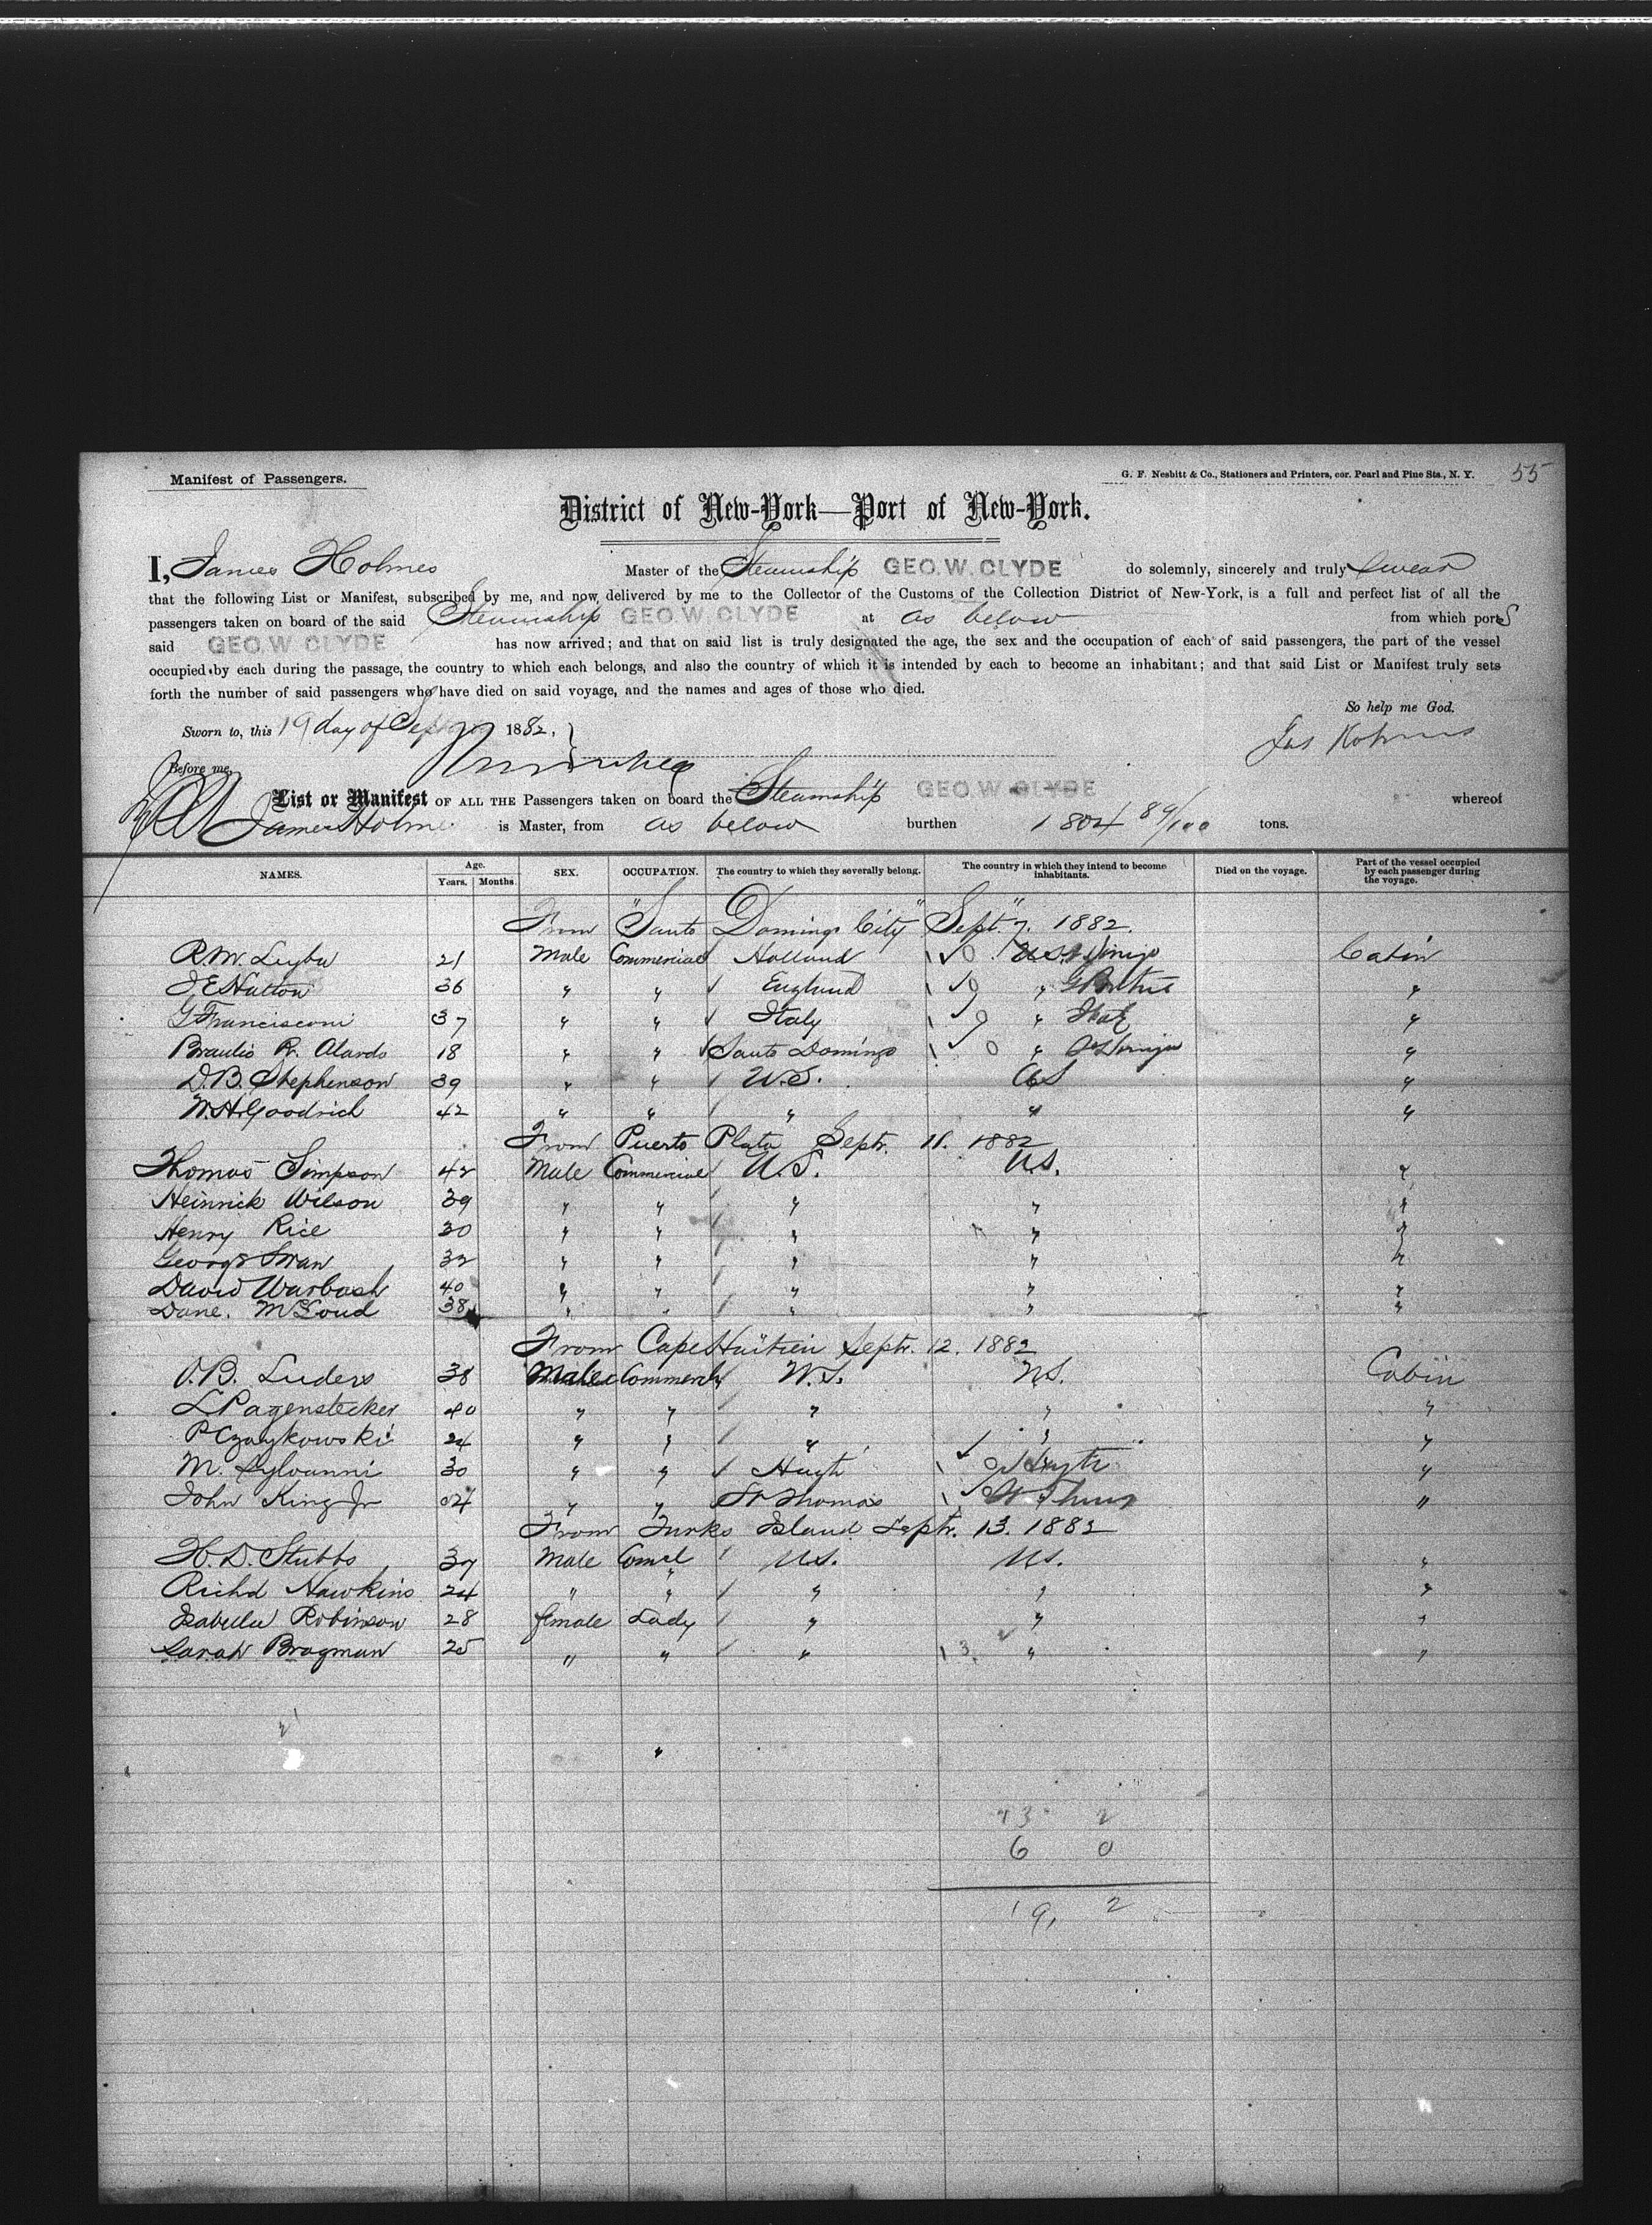 Manifest of Passengers.
G. F. Nesbitt & Co., Stationers and Printers, cor. Pearl and Pine Sts., N. Y.
55
District of New-York—Port of New-York.
I, James Holmes Master of the Steamship GEO. W. CLYDE do solemnly, sincerely and truly Swear
that the following List or Manifest, subscribed by me, and now delivered by me to the Collector of the Customs of the Collection District of New-York, is a full and perfect list of all the
passengers taken on board of the said Steamship GEO. W. CLYDE at as below from which ports
said GEO. W. CLYDE has now arrived; and that on said list is truly designated the age, the sex and the occupation of each of said passengers, the part of the vessel
occupied by each during the passage, the country to which each belongs, and also the country of which it is intended by each to become an inhabitant; and that said List or Manifest truly sets
forth the number of said passengers who have died on said voyage, and the names and ages of those who died.
So help me God.
Sworn to, this 19 day of Sept 1882.
Jas Holmes
Before me,
List or Manifest OF ALL THE Passengers taken on board the Steamship GEO. W. CLYDE whereof
James Holmes is Master, from as below burthen 1804 89/100 tons.
NAMES. Age. Years. Months. SEX. OCCUPATION. The country to which they severally belong. The country in which they intend to become inhabitants. Died on the voyage. Part of the vessel occupied by each passenger during the voyage.
From "Santo Domingo City" Sept. 7. 1882.
R. M. Leyba 21 Male Commercial Holland U.S. Cabin
J E Hutton 36 " " England " "
G Francisconi 37 " " Italy " "
Braulio R. Alardo 18 " " Santo Domingo " "
D. B. Stephenson 39 " " U.S. US "
W. H. Goodrich 42 " " " " "
From Puerto Plata Septr. 11. 1882
Thomas Simpson 42 Male Commercial U.S. U.S. "
Heinrick Wilson 39 " " " " "
Henry Rice 30 " " " " "
George Swan 32 " " " " "
David Warbash 40 " " " " "
Dane. McLoud 38 " " " " "
From Cape Haïtien Septr. 12. 1882
O. B. Luders 38 Male Commercl U.S. U.S. Cabin
L Pagenstecker 40 " " " " "
P Czaykowski 24 " " " " "
M. Sylvanni 30 " " Hayti Hayti "
John King Jr 24 " " St Thomas St Thomas "
From Turks Island Septr. 13. 1882
H. D. Stubbs 37 Male Comcl U.S. U.S. "
Richd Hawkins 24 " " " " "
Isabella Robinson 28 female Lady " " "
Sarah Bragman 25 " " " 13 " "
13 2
6 0
19, 2